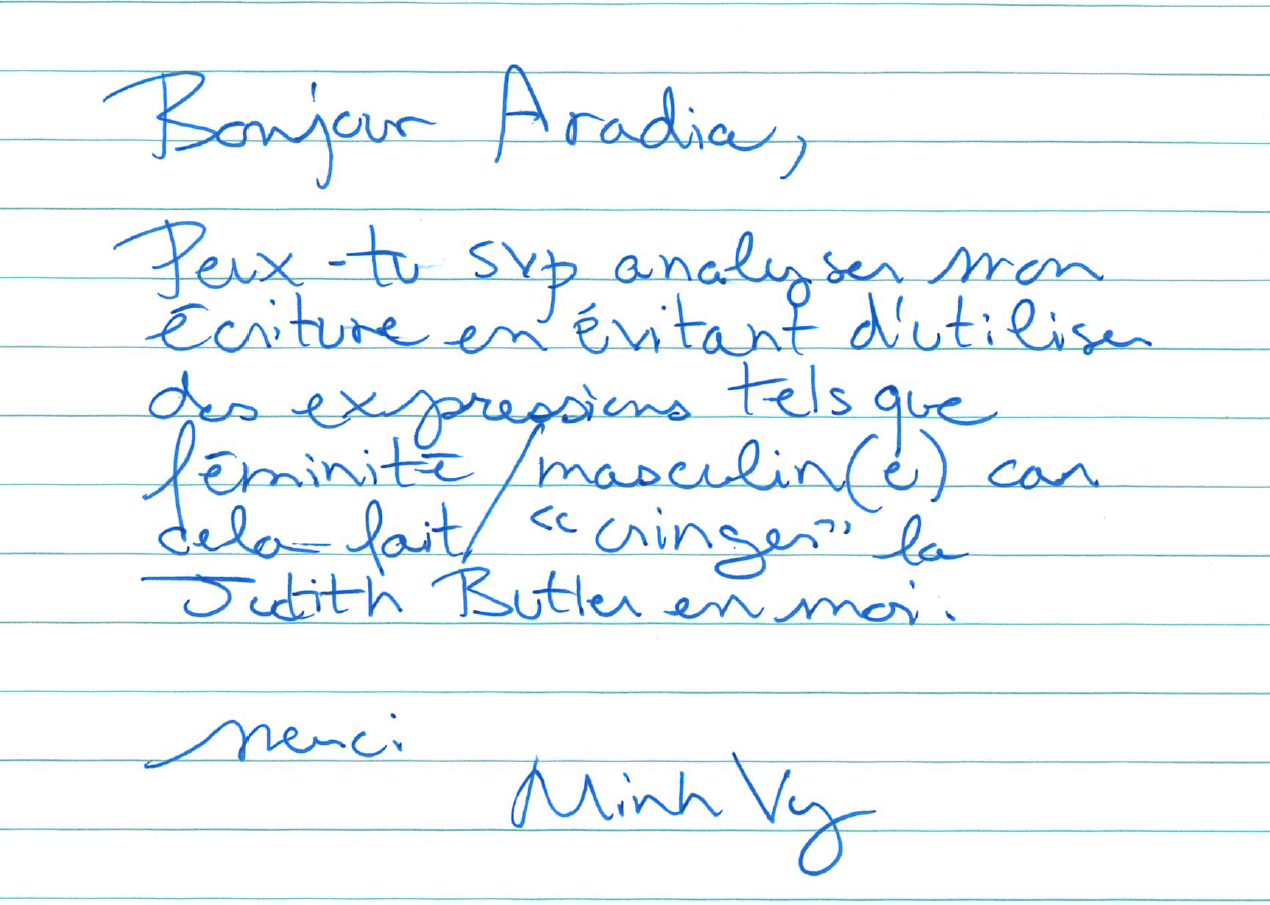 Bonjour Aradia,
Peux-tu svp analyser mon
écriture en évitant d'utiliser
des expressions tels que
féminité/masculin(é) car
cela fait "cringer" la
Judith Butler en moi.
Merci
Minh Vy